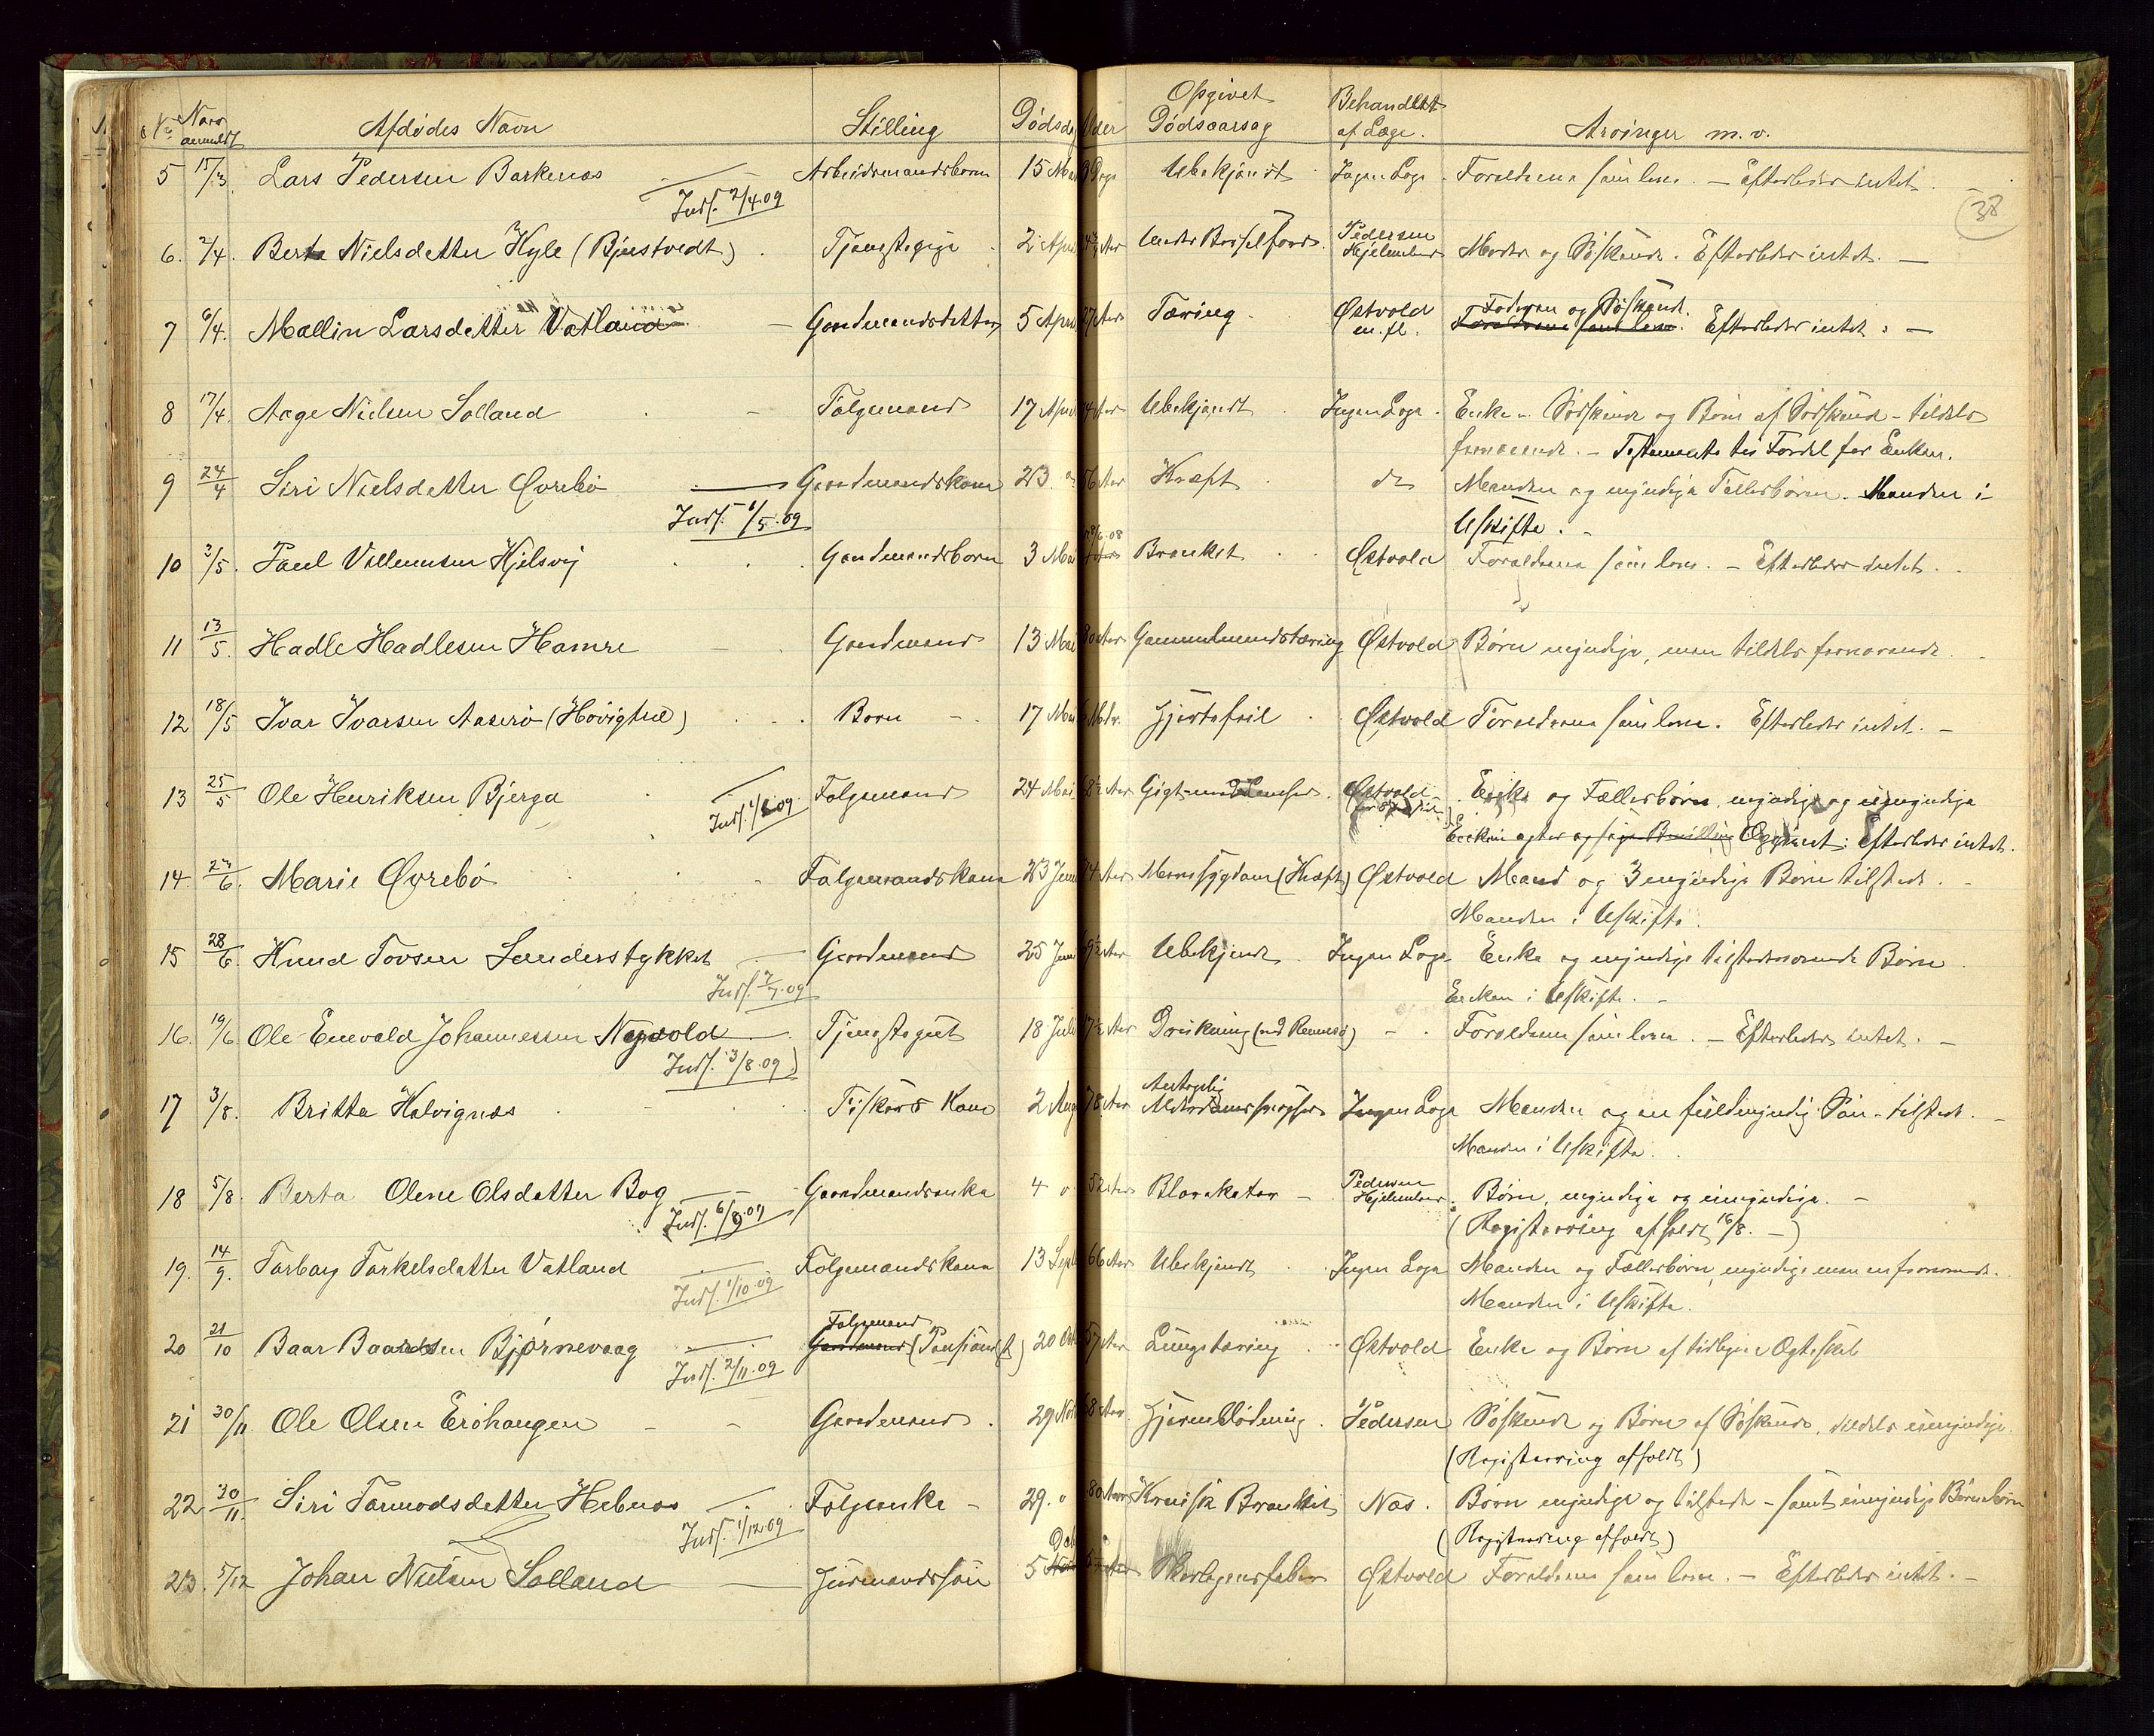 No Naar anmeldt Afdødes Navn Stilling Dødsdag Alder Opgivet Dødsaarsag Behandlet af Læge. Arvinger m.v.
38
5 15/3. Lars Pedersen Barkenæs Arbeidsmandsbarn 15 Mar Dage Ubekjendt Ingen Læge. Forældrene som leve. — Efterlader intet.
Inds. 2/4.09
6. 2/4. Berta Nielsdatter Hyle (Bjustvedt) Tjenestepige 2 April Aar Under Barselfærd. Pedersen Hjelmeland Moder og Søskende. Efterlader intet. —
7 6/4. Mallin Larsdatter Vatland Gaardmandsdatter 5 April 27 Aar Tæring Østvold m.fl. Faderen og Søskende. Forældrene som leve. Efterlader intet. —
8 17/4. Aage Nielsen Solland Følgemand 17 April Aar Ubekjendt Ingen Læge. Enke. Søskende og Børn af Søskende - tildels
fraværende. - Testamente til Fordel for Enken.
9 24/4 Siri Nielsdatter Øvrebø Gaardmandskone 23. " 56 Aar Kræft do Manden og myndige Fællesbørn. Manden i
Inds. 1/5.09 Uskifte. -
10 3/5. Paul Villumsen Hjelsvig Gaardmandsbarn 3 Mai Bronkit Østvold Forældrene som leve. - Efterlader intet.
11 13/5. Hadle Hadlesen Hamre Gaardmand 13 Mai 80 Aar Gammelmandstæring Østvold Børn myndige, men tildels fraværende.
12 18/5 Ivar Ivarsen Aaserø (Høvighei) Barn 17 Mai Mdr. Hjertefeil Østvold Forældrene som leve. Efterlader intet. —
13 25/5 Ole Henriksen Bjerga Følgemand 24 Mai Aar Gigt Østvold Enke og Fællesbørn, myndige og umyndige
Inds. 1/6 09 Enken agter og søge Bevilling Opgivet: Efterlader intet.
14. 23/6. Marie Øvrebø Følgemandskone 23 Juni 74 Aar Mavesygdom (Kræft) Østvold Mand og 3 myndige Børn tilstede.
Manden i Uskifte.
15 28/6. Knud Tovsen Sanderstykket Gaardmand 25 Juni Aar Ubekjendt Ingen Læge Enke og myndige tilstedeværende Børn
Inds. 2/7.09 Enken i Uskifte. -
16. 19/6. Ole Enevald Johannessen Nygvold Tjenestegut 18 Juli 17½ Aar Drukning (ved Rennesø) Forældrene som leve. - Efterlader intet. —
Inds. 3/8.09
17 3/8. Britta Halvignæs Fiskers Kone 2 Aug 78 Aar Antagelig Alderdomssvaghed Ingen Læge Manden og en fuldmyndig Søn - tilstede. -
Manden i Uskifte.
18 5/8. Berta Olene Olsdatter Bog Gaardmandsenke 4 " 52 Aar Blærekatar - Pedersen Hjelmeland. Børn, myndige og umyndige. -
Inds. 6/9.09 (Registrering afholdt 16/8. -)
19. 14/9. Torborg Torkelsdatter Vatland Følgemandskone 13 Sept 66 Aar Ubekjendt Ingen Læge Manden og Fællesbørn, myndige men en fraværende.
Inds. 1/10.09 Manden i Uskifte.
20 21/10 Baar Baardsen Bjørnevaag Følgemand Gaardmand (Pensionist) 20 Okt 57 Aar Lungetæring Østvold Enke og Børn af tidligere Ægteskab
Inds. 2/11.09
21 30/11 Ole Olsen Erøhaugen Gaardmand. 29 Nov 68 Aar. Hjerneblødning. Pedersen Søskende og Børn af Søskende, tildels umyndige.
(Registrering afholdt)
22 30/11. Siri Tormodsdatter Hebnæs Følgeenke - 29. " 80 Aar Kronisk Bronkit Næs. Børn myndige og tilstede - samt umyndige Børnebørn
Inds. 1/12.09 (Registrering afholdt)
23. 5/12 Johan Nielsen Solland Husmandssøn 5 Dec Aar Skarlagensfeber Østvold Forældrene som leve. - Efterlader intet. -